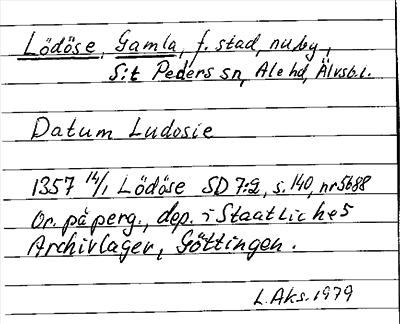 Lödöse, Gamla, f. stad, nu by,
S:t Peders sn, Ale hd, Älvsb.l.
Datum Ludosie
1357 14/1 Lödöse SD 7:2, s. 140, nr 5688
Or. på perg., dep. i Staatliches
Archivlager, Göttingen.
L. Aks. 1979